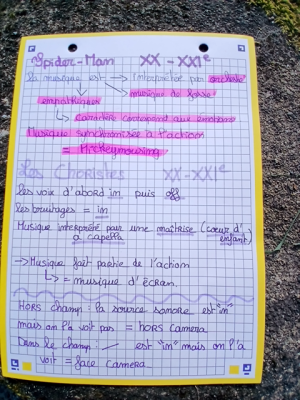 Spider-Man XX - XXIe
La musique est → interprétée par orchestre
→ musique de fosse
empathique
↳ caractère correspond aux émotions
Musique synchronisée à l'action
= Mickeymousing
Les Choristes XX-XXIe
Les voix d'abord in puis off
les bruitages = in
Musique interprété par une maîtrise (coeur d'enfant)
a capella
→ Musique fait partie de l'action
↳ = musique d'écran.
HORS champ : la source sonore est "in"
mais on l'a voit pas = hors camera
Dans le champ : est "in" mais on l'a
voit = face camera